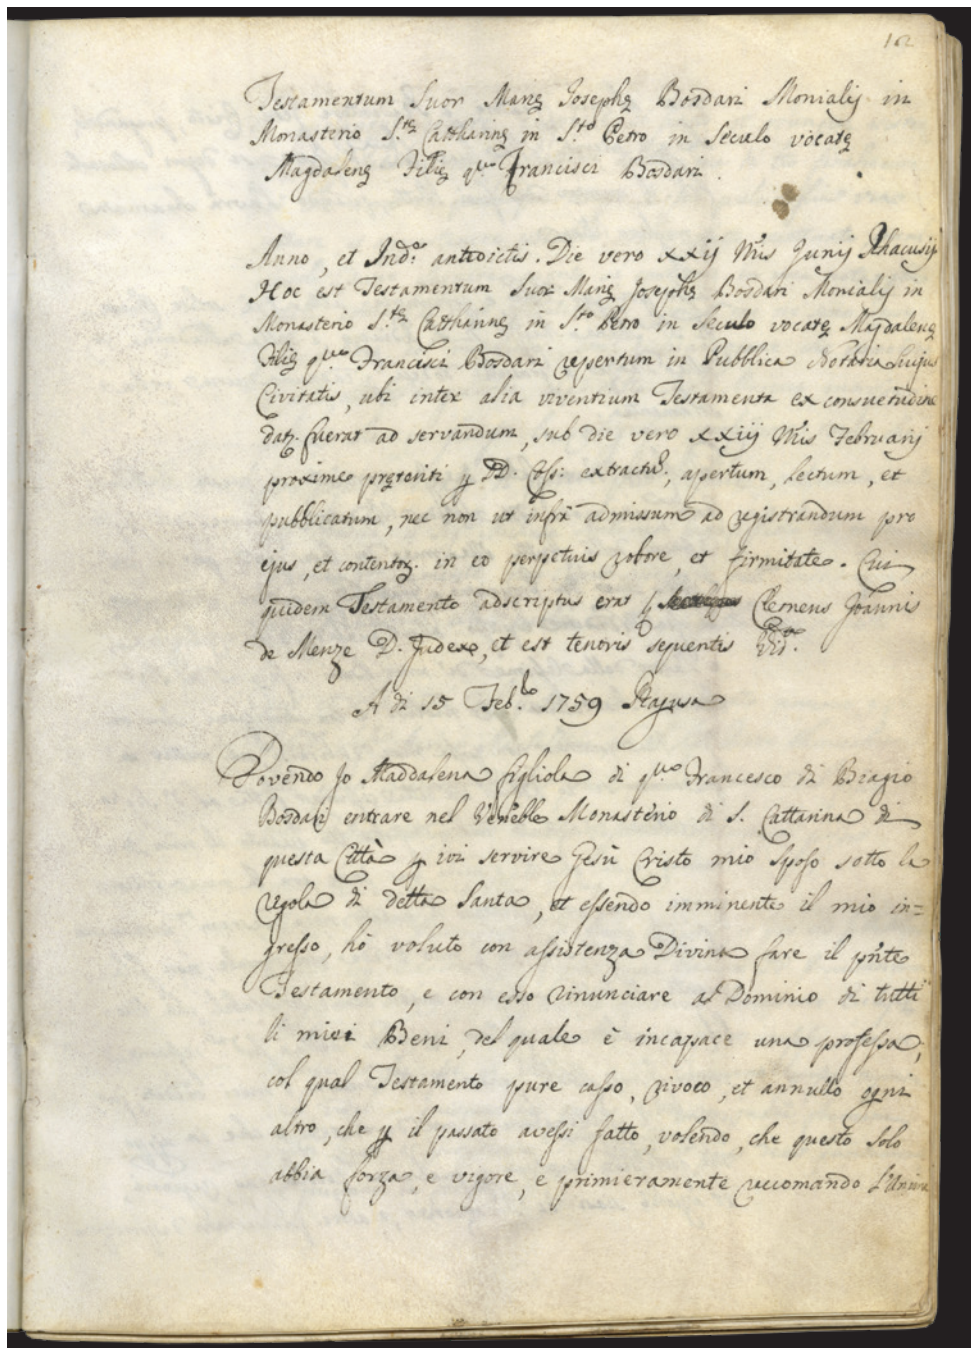 162
Testamentum Suor Marię Josephę Bosdari Monialis in
Monasterio S.tę Cattharinę in S.to Petro in Seculo vocatę
Magdalenę Filię q.m Francisci Bosdari.
Anno, et Ind.e antedictis. Die vero XXij Mis Junij Rhacusij
Hoc est Testamentum Suor Marię Josephę Bosdari Monialis in
Monasterio S.tę Cattharinę in S.to Petro in Seculo vocatę Magdalenę
Filię q.m Francisci Bosdari repertum in Pubblica Notaria hujus
Civitatis, ubi inter alia viventium Testamenta ex consuetudine
dat. fuerat ad servandum, sub die vero XXiij Mis Februarij
proxime pręteriti p DD. extractu, apertum, lectum, et
pubblicatum, nec non ut infra admissum ad registrandum pro
ejus, et contentor. in eo perpetuis robore, et firmitate. Cui
quidem Testamento adscriptus erat Clemens Joannis
de Menze D. Judex, et est tenoris sequentis vid.
A di 15 Feb.o 1759 Ragusa
Dovendo Jo Maddalena figliola di q.m Francesco di Biagio
Bosdari entrare nel Veneble Monasterio di S. Cattarina di
questa Città p ivi servire Gesù Cristo mio Sposo sotto la
regola di detta Santa, et essendo imminente il mio in=
gresso, hò voluto con assistenza Divina fare il pnte
Testamento, e con esso rinunciare al Dominio di tutti
li miei Beni, del quale è incapace una professa,
col qual Testamento pure casso, rivoco, et annullo ogni
altro, che p il passato avessi fatto, volendo, che questo solo
abbia forza, e vigore, e primieramente raccomando l'Anima